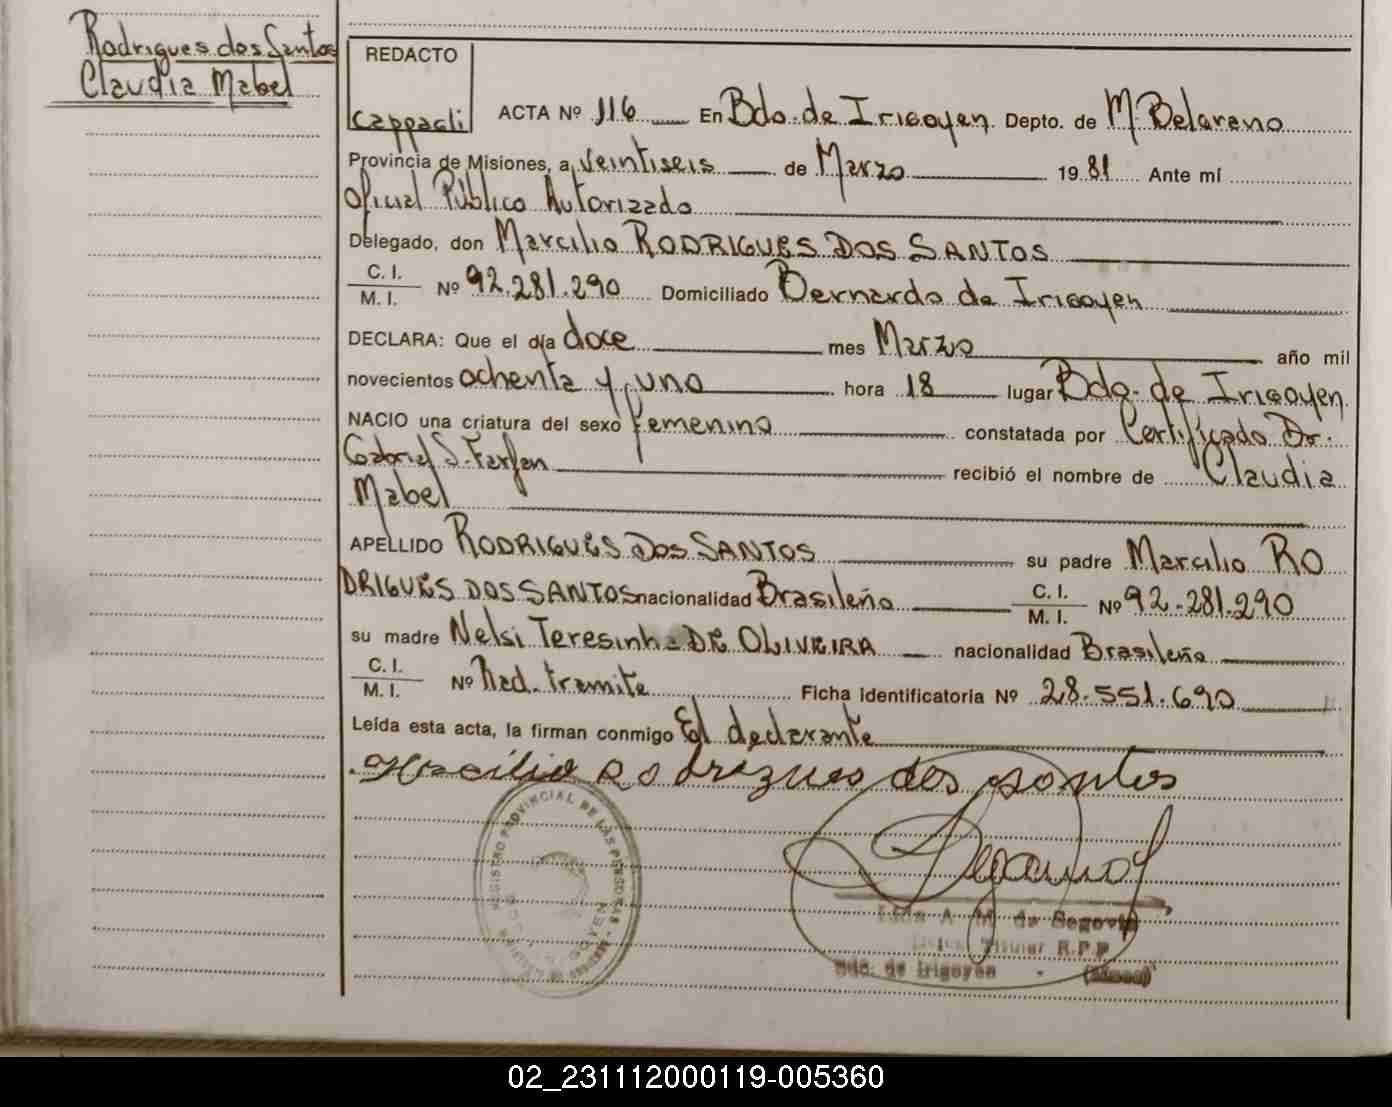 Rodrigues dos Santos
Claudia Mabel
REDACTO
Cappagli
ACTA Nº 116 En Bdo. de Irigoyen Depto. de M Belgrano
Provincia de Misiones, a veintiseis de Marzo 1981 Ante mí
Oficial Público Autorizado
Delegado, don Marcilio RODRIGUES DOS SANTOS
C. I.
M. I. Nº 92.281.290 Domiciliado Bernardo de Irigoyen
DECLARA: Que el día doce mes Marzo año mil
novecientos ochenta y uno hora 18 lugar Bdo. de Irigoyen
NACIO una criatura del sexo femenino constatada por Certificado Dr.
Gabriel S. Farfan recibió el nombre de Claudia
Mabel
APELLIDO RODRIGUES DOS SANTOS su padre Marcilio RO
DRIGUES DOS SANTOS nacionalidad Brasileña C. I.
M. I. Nº 92-281.290
su madre Nelsi Teresinha DE OLIVEIRA nacionalidad Brasileña
C. I.
M. I. Nº Rad. tramite Ficha identificatoria Nº 28.551.690
Leída esta acta, la firman conmigo El declarante
Marcilio Rodrigues dos Santos
REGISTRO PROVINCIAL DE LAS PERSONAS
A. M. de Segovia
Titular R.P.P
Bdo. de Irigoyen - (Mnes)
02_231112000119-005360